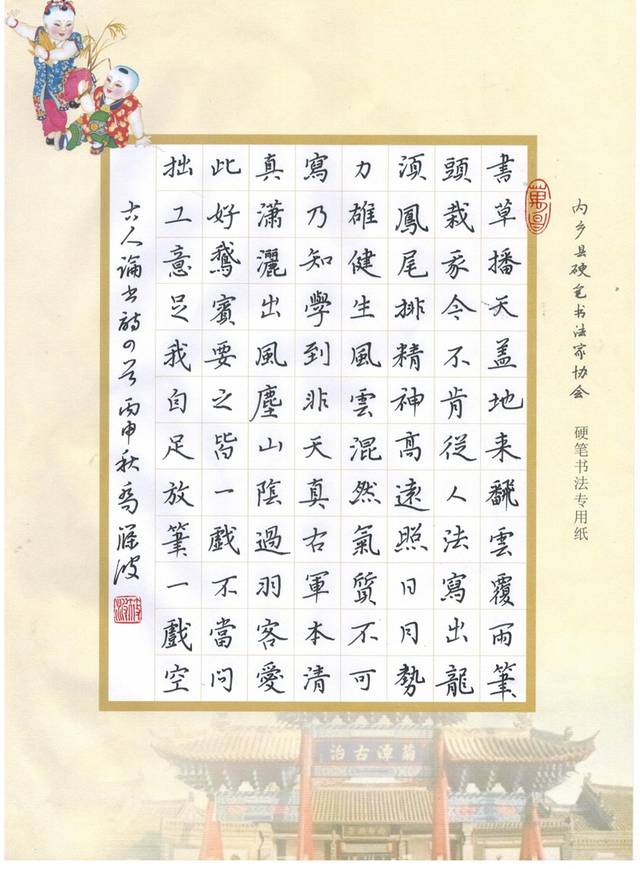 内乡县硬笔书法家协会 硬笔书法专用纸
書草播天蓋地来飜雲覆雨筆
頭栽豕今不肯從人法寫出龍
須鳳尾排精神高遠照日月勢
力雄健生風雲混然氣質不可
寫乃知學到非天真右軍本清
真瀟灑出風塵山陰過羽客愛
此好鵝賓要之皆一戲不當問
拙工意足我自足放筆一戲空
古人論书詩四首 丙申秋
菊潭古治